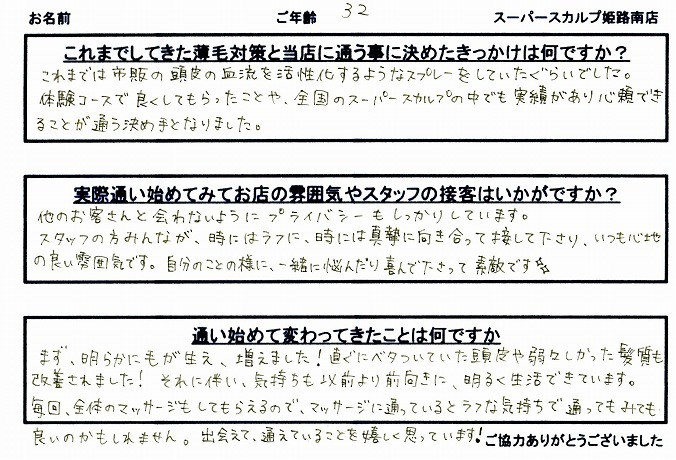 お名前 ご年齢 32 スーパースカルプ姫路南店
これまでしてきた薄毛対策と当店に通う事に決めたきっかけは何ですか？
これまでは市販の頭皮の血流を活性化するようなスプレーをしていたぐらいでした。
体験コースで良くしてもらったことや、全国のスーパースカルプの中でも実績があり心頼でき
ることが通う決め手となりました。
実際通い始めてみてお店の雰囲気やスタッフの接客はいかがですか？
他のお客さんと会わないようにプライバシーもしっかりしています。
スタッフの方みんなが、時にはラフに、時には真摯に向き合って接して下さり、いつも心地
の良い雰囲気です。自分のことの様に、一緒に悩んだり喜んで下さって素敵です☆
通い始めて変わってきたことは何ですか
まず、明らかに毛が生え、増えました！直ぐにベタついていた頭皮や弱々しかった髪質も
改善されました！それに伴い、気持ちも以前より前向きに、明るく生活できています。
毎回、全体のマッサージもしてもらえるので、マッサージに通っているとラフな気持ちで通ってもみても
良いのかもしれません。出会えて、通えていることを嬉しく思っています！
ご協力ありがとうございました